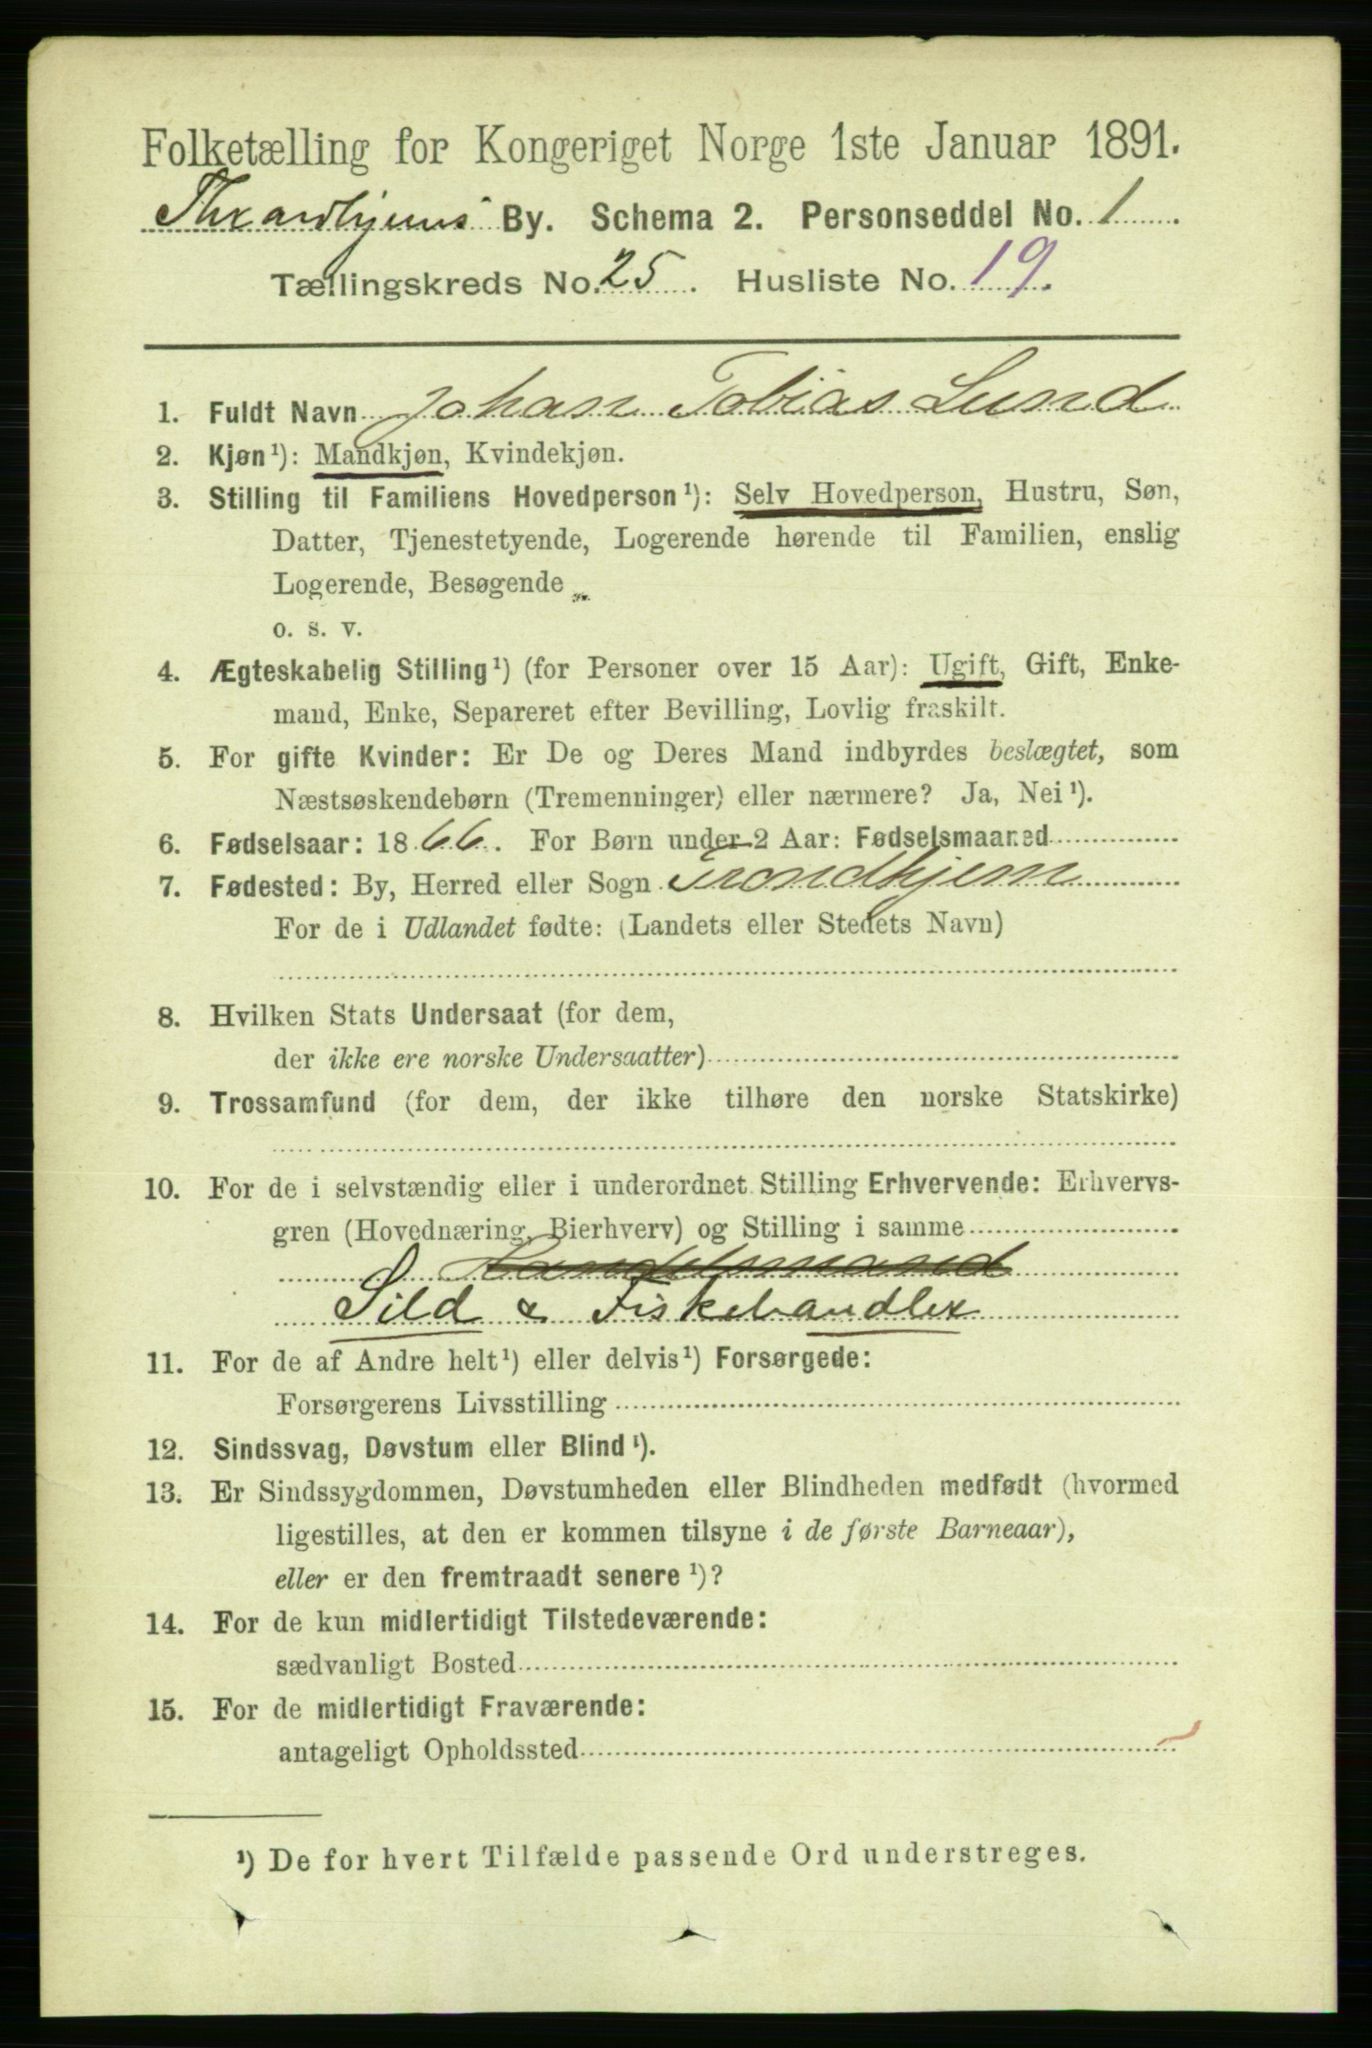 Folketælling for Kongeriget Norge 1ste Januar 1891.
Throndhjems By. Schema 2. Personseddel No. 1
Tællingskreds No. 25. Husliste No. 19.
1. Fuldt Navn Johan Tobias Lund
2. Kjøn¹): Mandkjøn, Kvindekjøn.
3. Stilling til Familiens Hovedperson¹): Selv Hovedperson, Hustru, Søn,
Datter, Tjenestetyende, Logerende hørende til Familien, enslig
Logerende, Besøgende
o. s. v.
4. Ægteskabelig Stilling¹) (for Personer over 15 Aar): Ugift, Gift, Enke-
mand, Enke, Separeret efter Bevilling, Lovlig fraskilt.
5. For gifte Kvinder: Er De og Deres Mand indbyrdes beslægtet, som
Næstsøskendebørn (Tremenninger) eller nærmere? Ja, Nei¹).
6. Fødselsaar: 1866. For Børn under 2 Aar: Fødselsmaaned
7. Fødested: By, Herred eller Sogn Trondhjem
For de i Udlandet fødte: (Landets eller Stedets Navn)
8. Hvilken Stats Undersaat (for dem,
der ikke ere norske Undersaatter)
9. Trossamfund (for dem, der ikke tilhøre den norske Statskirke)
10. For de i selvstændig eller i underordnet Stilling Erhvervende: Erhvervs-
gren (Hovednæring, Bierhverv) og Stilling i samme
Handelsmand
Sild & Fiskehandler
11. For de af Andre helt¹) eller delvis¹) Forsørgede:
Forsørgerens Livsstilling
12. Sindssvag, Døvstum eller Blind¹).
13. Er Sindssygdommen, Døvstumheden eller Blindheden medfødt (hvormed
ligestilles, at den er kommen tilsyne i de første Barneaar),
eller er den fremtraadt senere¹)?
14. For de kun midlertidigt Tilstedeværende:
sædvanligt Bosted
15. For de midlertidigt Fraværende:
antageligt Opholdssted
¹) De for hvert Tilfælde passende Ord understreges.